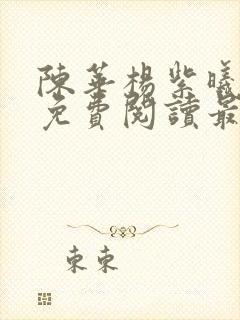 陳華楊紫曦
免費閱讀最
東東